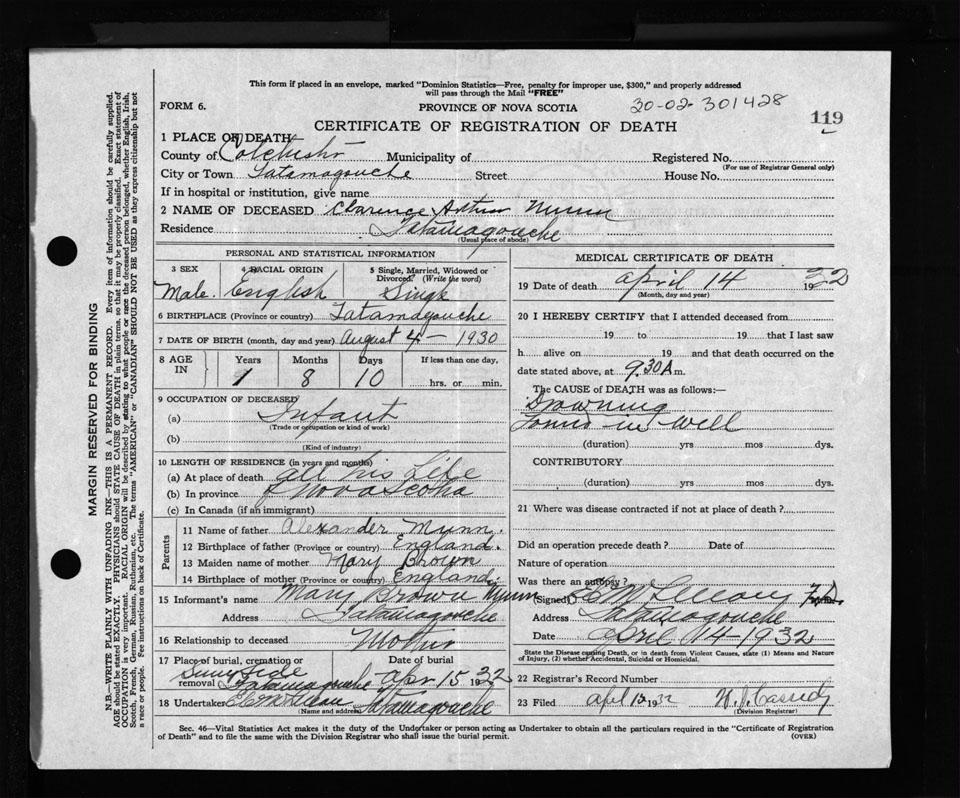 This form if placed in an envelope, marked "Dominion Statistics—Free, penalty for improper use, $300," and properly addressed
will pass through the Mail "FREE"
FORM 6.
PROVINCE OF NOVA SCOTIA
30-02-301428
119
CERTIFICATE OF REGISTRATION OF DEATH
1 PLACE OF DEATH
County of Colchester Municipality of Registered No.
(For use of Registrar General only)
City or Town Tatamagouche Street House No.
If in hospital or institution, give name
2 NAME OF DECEASED Clarence Arthur Munn
Residence Tatamagouche
(Usual place of abode)
PERSONAL AND STATISTICAL INFORMATION
3 SEX 4 RACIAL ORIGIN 5 Single, Married, Widowed or Divorced? (Write the word)
Male. English Single
6 BIRTHPLACE (Province or country) Tatamagouche
7 DATE OF BIRTH (month, day and year) August 4 - 1930
8 AGE IN Years Months Days If less than one day,
1 8 10 hrs. or min.
9 OCCUPATION OF DECEASED
(a) Infant
(Trade or occupation or kind of work)
(b)
(Kind of industry)
10 LENGTH OF RESIDENCE (in years and months)
(a) At place of death all his Life
(b) In province Nova Scotia
(c) In Canada (if an immigrant)
Parents
11 Name of father Alexander Munn.
12 Birthplace of father (Province or country) England.
13 Maiden name of mother Mary Brown
14 Birthplace of mother (Province or country) England.
15 Informant's name Mary Brown Munn
Address Tatamagouche
16 Relationship to deceased Mother
17 Place of burial, cremation or removal Date of burial
Tatamagouche Apr 15 1932
18 Undertaker Tatamagouche
(Name and address)
MEDICAL CERTIFICATE OF DEATH
19 Date of death April 14 1932
(Month, day and year)
20 I HEREBY CERTIFY that I attended deceased from
19 to 19 that I last saw
h alive on 19 and that death occurred on the
date stated above, at 9.30 A m.
The CAUSE OF DEATH was as follows:—
Drowning
Found in Well
(duration) yrs mos dys.
CONTRIBUTORY
(duration) yrs mos dys.
21 Where was disease contracted if not at place of death?
Did an operation precede death? Date of
Nature of operation
Was there an autopsy?
(Signed)
Address Tatamagouche
Date April 14 - 1932
State the Disease causing Death, or in death from Violent Causes, state (1) Means and Nature
of Injury, (2) whether Accidental, Suicidal or Homicidal.
22 Registrar's Record Number
23 Filed April 15 1932
(Division Registrar)
Sec. 46—Vital Statistics Act makes it the duty of the Undertaker or person acting as Undertaker to obtain all the particulars required in the "Certificate of Registration
of Death" and to file the same with the Division Registrar who shall issue the burial permit.
(OVER)
MARGIN RESERVED FOR BINDING
N.B.—WRITE PLAINLY WITH UNFADING INK—THIS IS A PERMANENT RECORD. Every item of information should be carefully supplied.
AGE should be stated EXACTLY. PHYSICIANS should STATE CAUSE OF DEATH in plain terms, so that it may be properly classified. Exact statement of
OCCUPATION is very important. RACIAL ORIGIN will be described by stating to what people or race the deceased person belonged, whether English, Irish,
Scotch, French, German, Russian, Ruthenian, etc. The terms "AMERICAN" or "CANADIAN" SHOULD NOT BE USED as they express citizenship but not
a race or people. See instructions on back of Certificate.